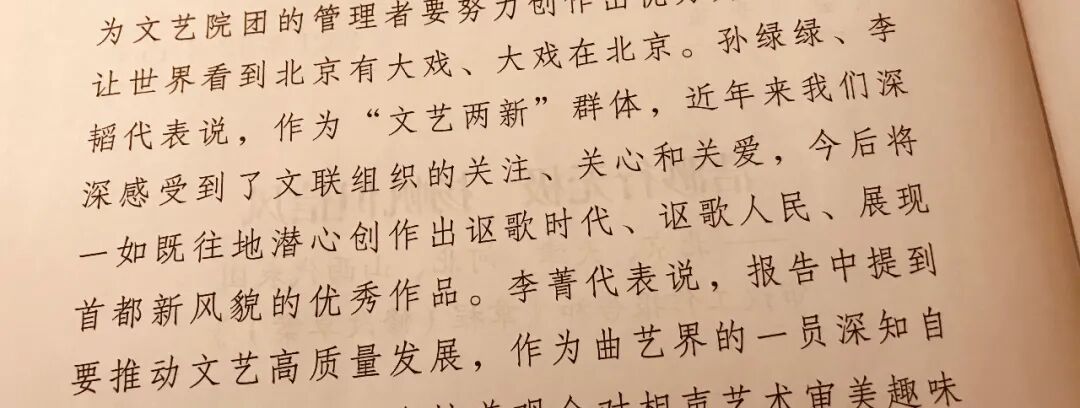 为文艺院团的管理者要努力创作出优
让世界看到北京有大戏、大戏在北京。孙绿绿、李
韬代表说，作为“文艺两新”群体，近年来我们深
深感受到了文联组织的关注、关心和关爱，今后将
一如既往地潜心创作出讴歌时代、讴歌人民、展现
首都新风貌的优秀作品。李菁代表说，报告中提到
要推动文艺高质量发展，作为曲艺界的一员深知自
对相声艺术审美趣味